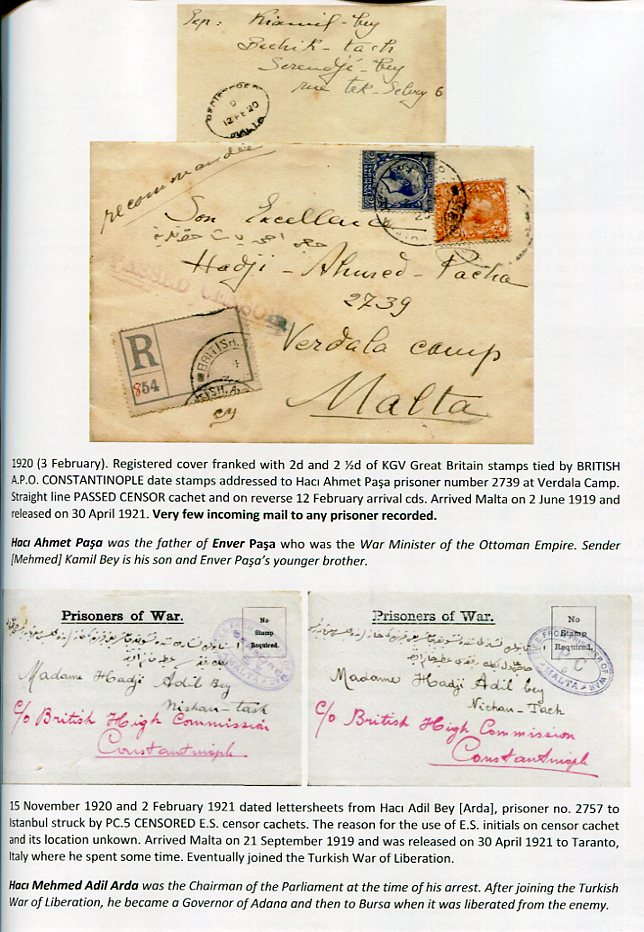 Exp: Kiamil-bey
Bechik-tach
Serendjé-bey
rue tek-Selvy 6
REGISTERED
12 FE 20
MALTA
recommandée
Son Excellence
Hadji-Ahmed-Pacha
PASSED CENSOR
2739
Verdala camp
Malta
R
854
BRITISH.
1920 (3 February). Registered cover franked with 2d and 2 ½d of KGV Great Britain stamps tied by BRITISH
A.P.O. CONSTANTINOPLE date stamps addressed to Hacı Ahmet Paşa prisoner number 2739 at Verdala Camp.
Straight line PASSED CENSOR cachet and on reverse 12 February arrival cds. Arrived Malta on 2 June 1919 and
released on 30 April 1921. Very few incoming mail to any prisoner recorded.
Hacı Ahmet Paşa was the father of Enver Paşa who was the War Minister of the Ottoman Empire. Sender
[Mehmed] Kamil Bey is his son and Enver Paşa's younger brother.
Prisoners of War.
No
Stamp
Required.
Madame Hadji Adil Bey
Nishan-tash
c/o British High Commission
Constantinople
Prisoners of War.
No
Stamp
Required.
FROM PRISONER OF WAR
MALTA
Madame Hadji Adil bey
Nichan-Tach
c/o British High Commission
Constantinople
15 November 1920 and 2 February 1921 dated lettersheets from Hacı Adil Bey [Arda], prisoner no. 2757 to
Istanbul struck by PC.5 CENSORED E.S. censor cachets. The reason for the use of E.S. initials on censor cachet
and its location unkown. Arrived Malta on 21 September 1919 and was released on 30 April 1921 to Taranto,
Italy where he spent some time. Eventually joined the Turkish War of Liberation.
Hacı Mehmed Adil Arda was the Chairman of the Parliament at the time of his arrest. After joining the Turkish
War of Liberation, he became a Governor of Adana and then to Bursa when it was liberated from the enemy.